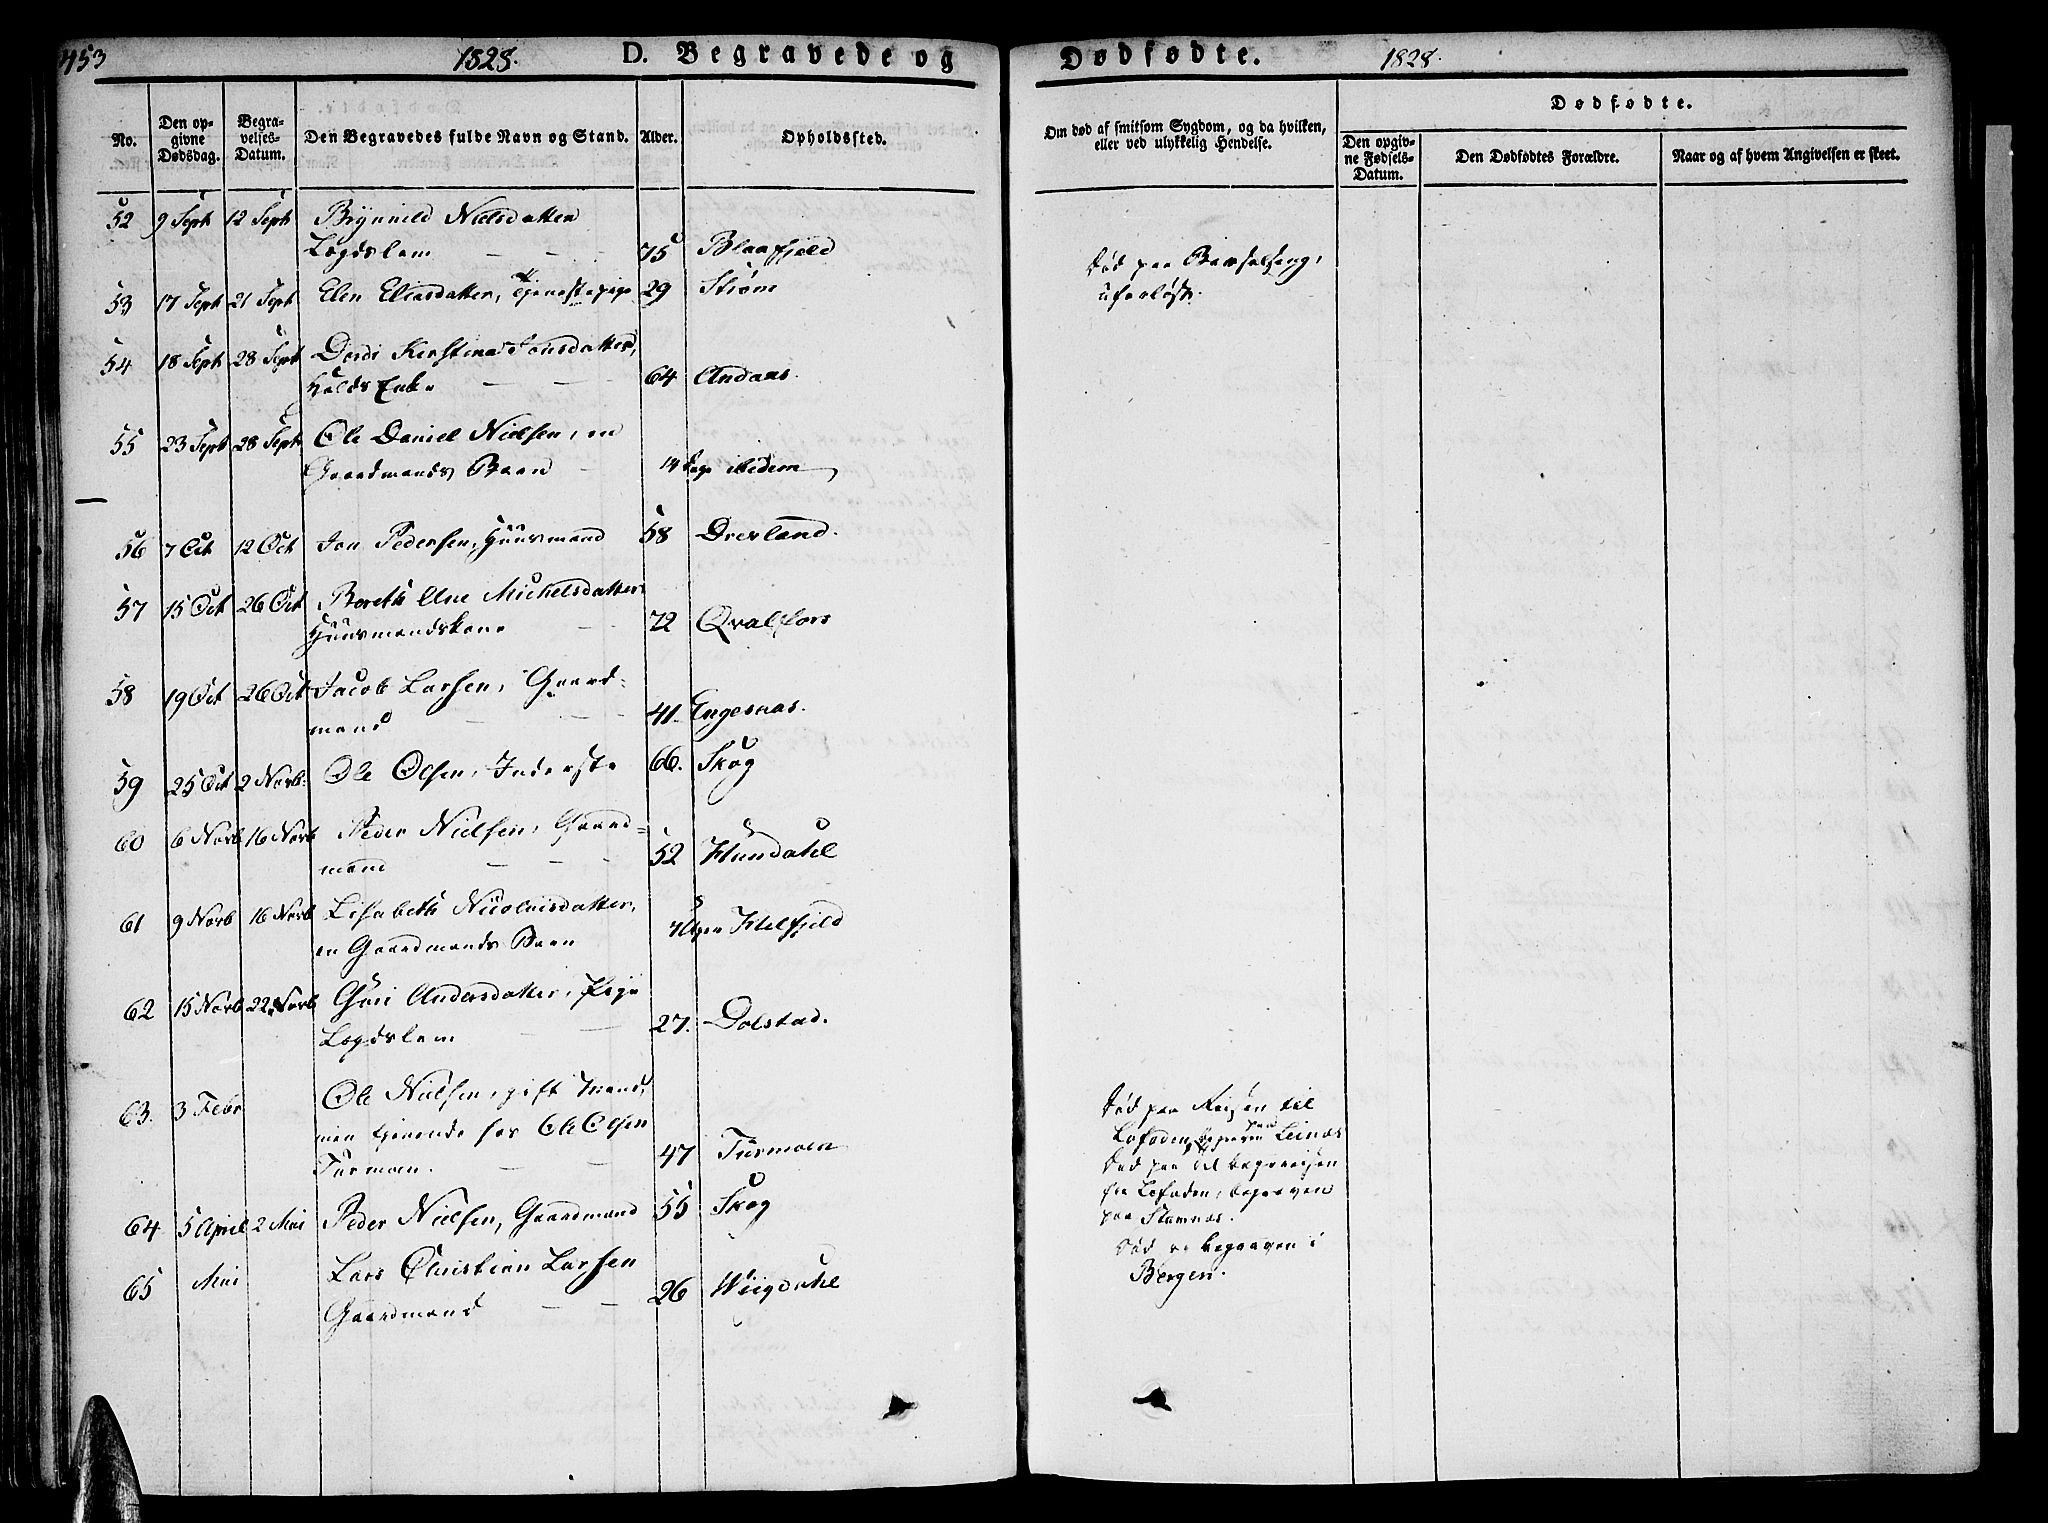 453
1828.
D. Begravede og
Dødfødte.
1828.
No.
Den op-
givne
Dødsdag.
Begra-
velses-
Datum.
Den Begravedes fulde Navn og Stand.
Alder.
Opholdssted.
Om død af smitsom Sygdom, og da hvilken,
eller ved ulykkelig Hendelse.
Dødfødte.
Den opgiv-
ne Fødsels-
Datum.
Den Dødfødtes Forældre.
Naar og af hvem Angivelsen er skeet.
52 9 Sept 12 Sept Brynnild Nielsdatter
Lægdslem 75 Blaafjeld
53 17 Sept 21 Sept Elen Eliasdatter, Tjenestepige 29 Strøm
Død paa Barselseng,
uforløst.
54 18 Sept 28 Sept Dordi Kerstina Jonsdatter,
Enke 64 Andaas.
55 23 Sept 28 Sept Ole Daniel Nielsen, en
Gaardmands Barn 14 Dage ibidem
56 7 Oct 12 Oct Jon Pedersen, Huusmand 58 Drevland.
57 15 Oct 26 Oct Bereth Ane Michelsdatter
Huusmandskone 72 Qvalfors
58 19 Oct 26 Oct Jacob Larsen, Gaard-
mand 41. Engesnas.
59 25 Oct 2 Novb. Ole Olsen, Inderste 66. Skog
60 6 Novb 16 Novb Peder Nielsen, Gaard-
mand 52 Hundahl
61 9 Novb 16 Novb Lisabeth Nicolaisdatter,
en Gaardmands Barn Helfjeld
62 15 Novb 22 Novb Guri Andersdatter, Pige
Lægdslem 27. Dolstad.
63. 3 Febr Ole Nielsen, gift Mand,
men tjenende hos Ole Olsen
Turmoen. 47 Turmoen
Død paa Reisen til
Lofoden, begraven paa Leinæs
64 5 April 2 Mai Peder Nielsen, Gaardmand 55 Skog
Død paa Tilbagereisen
fra Lofoden, begraven
paa Stamnæs.
65 Mai Lars Christian Larsen
Gaardmand 26 Wiigdahl
Død og begraven i
Bergen.